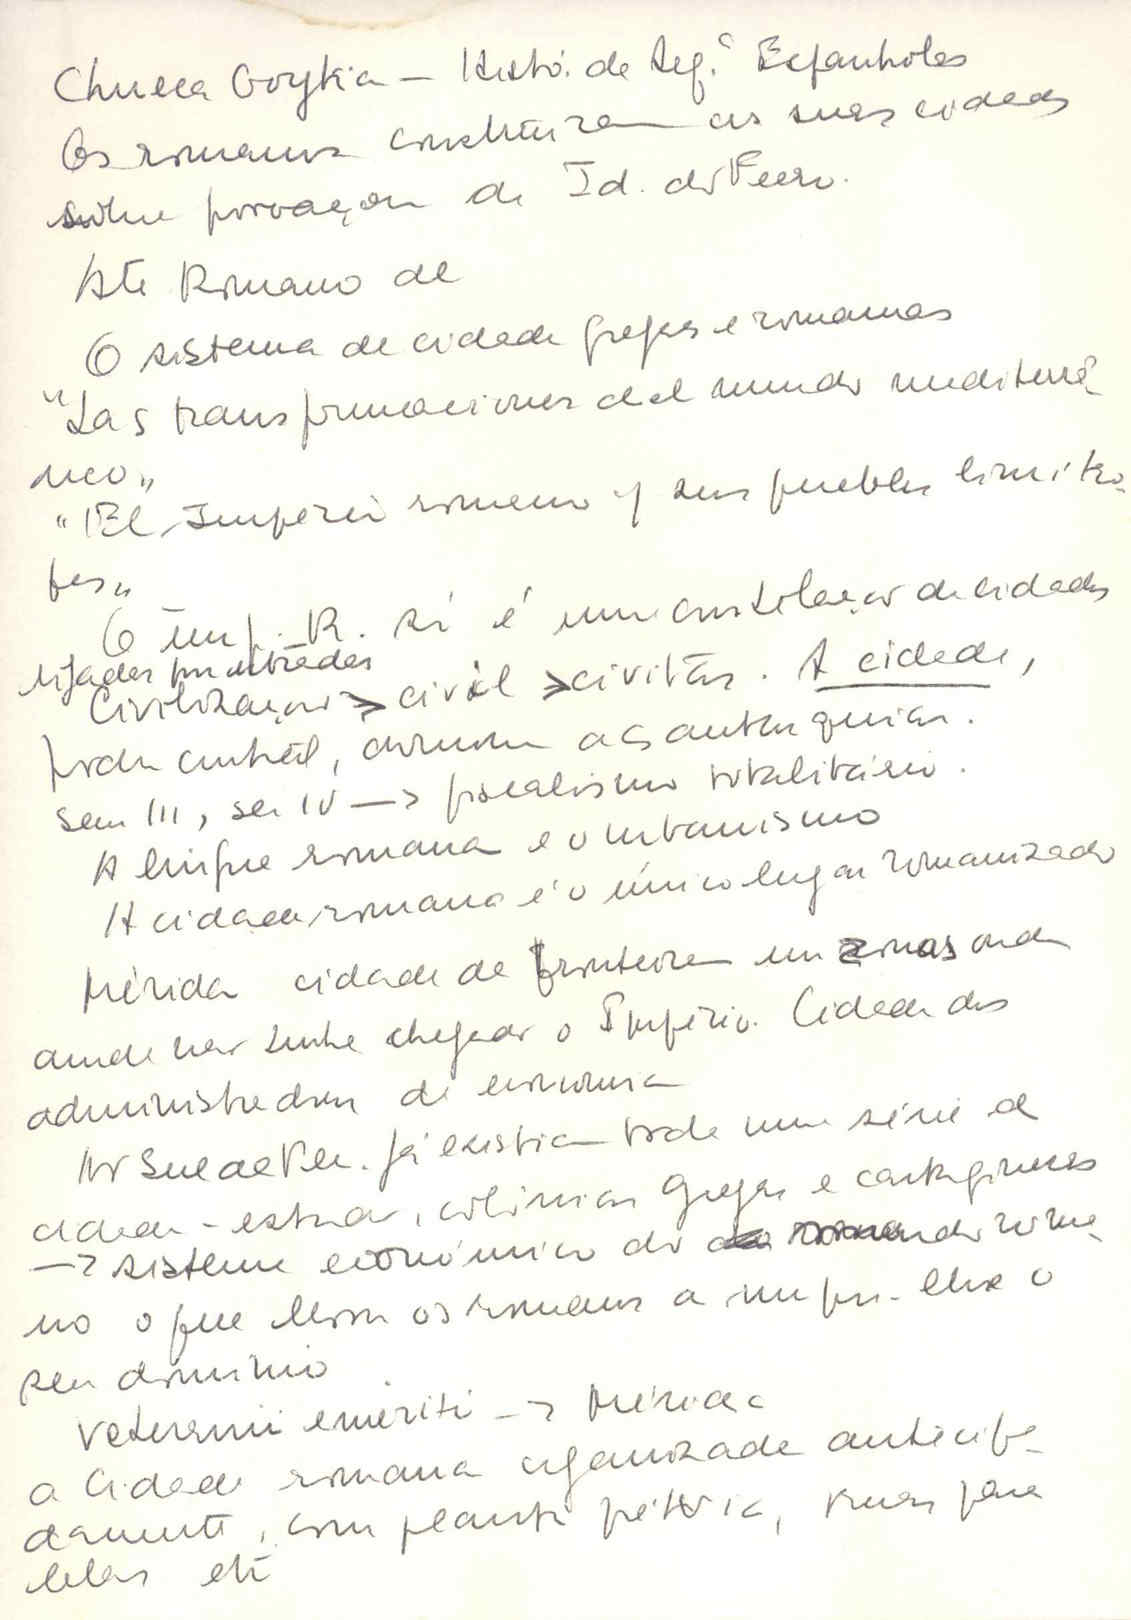 Chueca Goytia – Histó. de Espanholas
Os romanos construiram as suas cidades
sobre povoações da Id. do Ferro.
Até Romano de
O sistema de cidade gregas e romanas
"Las transformaciones del mundo mediterrâ-
neo"
"El Imperio romano y sus pueblos limitro-
fes"
O Imp. R. si é uma constelação de cidades
ligadas por estradas
Civilização > civil > civitas. A cidade,
poder central, domina as autarquias.
Sec III, sec IV –> fiscalismo totalitário.
A língua romana e o urbanismo
A cidade romana é o único lugar romanizado
Mérida cidade de fronteira em zonas onde
ainda não tinha chegado o Império. Cidade dos
administradores da economia
No Sul de já existia toda uma série de
cidade-estado, colónias gregas e cartaginesas
–> sistema económico do mundo roma-
no o que levou os romanos a impor-lhe o
seu domínio
Veteranii emeriti –> Mérida
a Cidade romana organizada antecipa-
damente, com planta prévia, ruas para
lelas etc